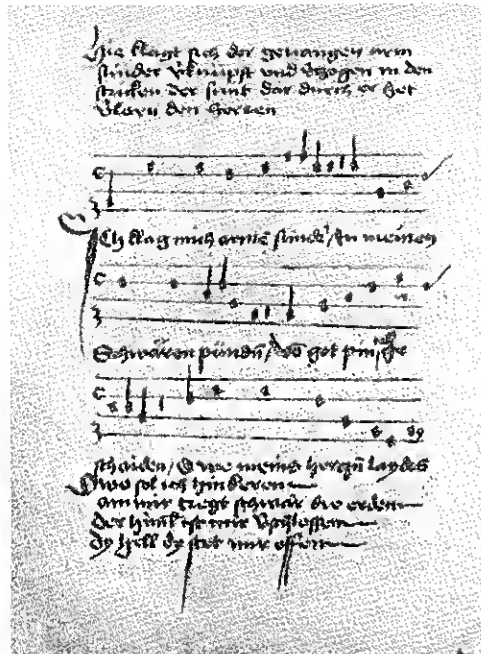 Hie klagt sich der gefangen arm
sünder v̄knüpft vnd v̄zogen in den
stricken der sünt dar durch er het
v̄lorn den herren
Ich klag mich armē sündē / In meinen
Schwären pündn / von got pin
schaiden / O we meins herczn laydes
wo sol ich hin keren
an mir tregt schwär die erden
der himl ist mir v̄schlossen
dy hell dy stet mir offen